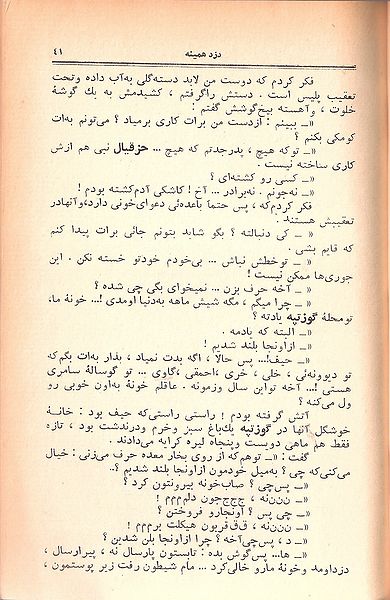 دزد همینه
۴۱
فکر کردم که دوست من لابد دسته‌گلی به‌آب داده وتحت
تعقیب پلیس است . دستش راگرفتم ، کشیدمش به یك گوشهٔ
خلوت ، وآهسته بیخ‌گوشش گفتم :
«ــ ببینم : ازدست من برات کاری برمیاد ؟ می‌تونم به‌ات
کومکی بکنم ؟
«ــ توکه هیچ ، پدرجدتم که هیچ ... حزقیال نبی هم ازش
کاری ساخته نیست .
«ــ کسی رو کشته‌ای ؟
«ــ نه‌جونم . نه‌برادر ... آخ ! کاشکی آدم‌کشته بودم !
فکر کردم‌که ، پس حتماً باعده‌ئی دعوای‌خونی دارد،وآنهادر
تعقیبش هستند .
«ــ کی دنبالته ؟ بگو شاید بتونم جائی برات پیدا کنم
که قایم بشی .
«ــ توخطش نباش ... بی‌خودم خودتو خسته نکن . این
جوری‌ها ممکن نیست !
«ــ آخه حرف بزن ... نمیخوای بگی چی شده ؟
«ــ چرا میگم ، مگه شیش ماهه به‌دنیا اومدی !... خونهٔ ما،
تومحلهٔ گوزتپه یادته ؟
«ــ البته که یادمه .
«ــ ازاونجا بلند شدیم !
«ــ حیف!... پس حالا ، اگه بدت نمیاد ، بذار به‌ات بگم‌که
تو دیوونه‌ئی ، خلی ، خری ،احمقی ،گاوی ... تو گوسالهٔ سامری
هستی !... آخه تواین سال وزمونه . عاقلم خونهٔ به‌اون خوبی رو
ول می‌کنه ؟
آتش گرفته بودم ! راستی راستی‌که حیف بود : خانهٔ
خوشگل آنها در گوزتپه یك‌باغ سبز وخرم ودرندشت بود ، تازه
فقط هم ماهی دویست وپنجاه لیره کرایه می‌دادند .
گفت : «ــ توهم‌که از روی بخار معده حرف می‌زنی : خیال
می‌کنی‌که چی ؟ به‌میل خودمون ازاونجا بلند شدیم ؟..
«ــ پس‌چی ؟ صاب‌خونه بیرونتون کرد ؟
«ــ ننن‌نه ، ججججون دلم‌مم !
«ــ چی پس ؟ اونجارو فروختن ؟
«ــ ننن‌نه ، ق‌ق‌قربون هیکلت برم‌مم !
«ــ د ، پس‌چی‌آخه ؟ چرا ازاونجا بلن شدین ؟
«ــ ها... پس‌گوش بده : تابستون پارسال نه ، پیرارسال ،
دزداومد وخونهٔ مارو خالی‌کرد ... مام شیطون رفت زیر پوستمون ،